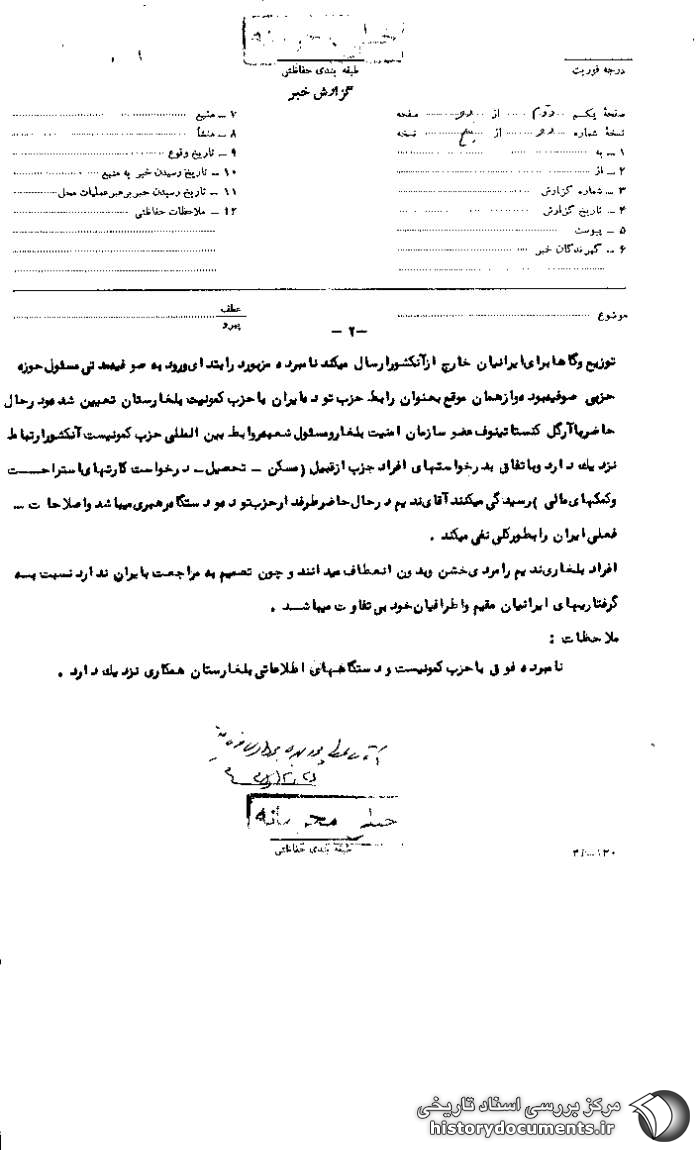 خیلی محرمانه
طبقه بندی حفاظتی
درجه فوریت
گزارش خبر
صفحهٔ یکم دوم از دو صفحه
نسخهٔ شماره دو از پنج نسخه
۱ ــ به
۲ ــ از
۳ ــ شماره گزارش
۴ ــ تاریخ گزارش
۵ ــ پیوست
۶ ــ گیرندگان خبر
۷ ــ منبع
۸ ــ منشأ
۹ ــ تاریخ وقوع
۱۰ ــ تاریخ رسیدن خبر به منبع
۱۱ ــ تاریخ رسیدن خبر برهبر عملیات محل
۱۲ ــ ملاحظات حفاظتی
موضوع
عطف
پیرو
ــ۲ ــ
توزیع وگاها برای ایرانیان خارج از آنکشور ارسال میکند نامبرده مزبور در ابتدای ورود به صوفیه مدتی مسئول حوزه
حزبی صوفیه بوده و از همان موقع بعنوان رابط حزب توده ایران با حزب کمونیت بلغارستان تعیین شده و در حال
حاضر با آرگل کنستانتینوف عضو سازمان امنیت بلغار و مسئول شعبه روابط بین المللی حزب کمونیست آنکشور ارتباط
نزدیک دارد و با تفاق بدرخواستهای افراد حزب از قبیل (مسکن ــ تحصیل ــ درخواست کارتهای استراحت
وکمکهای مالی ) رسیدگی میکنند آقای ندیم در حال حاضر طرفدار حزب توده و دستگاه رهبری میباشد و اصلاحات ...
فعلی ایران را بطور کلی نفی میکند .
افراد بلغاری ندیم را مردی خشن و بدون انعطاف میدانند و چون تصمیم به مراجعت بایران ندارد نسبت بسه
گرفتاریهای ایرانیان مقیم و اطرافیان خود بی تفاوت میباشد .
ملاحظات :
نامبرده فوق با حزب کمونیست و دستگاههای اطلاعاتی بلغارستان همکاری نزدیک دارد .
خیلی محرمانه
طبقه بندی حفاظتی
مرکز بررسی اسناد تاریخی
historydocuments.ir